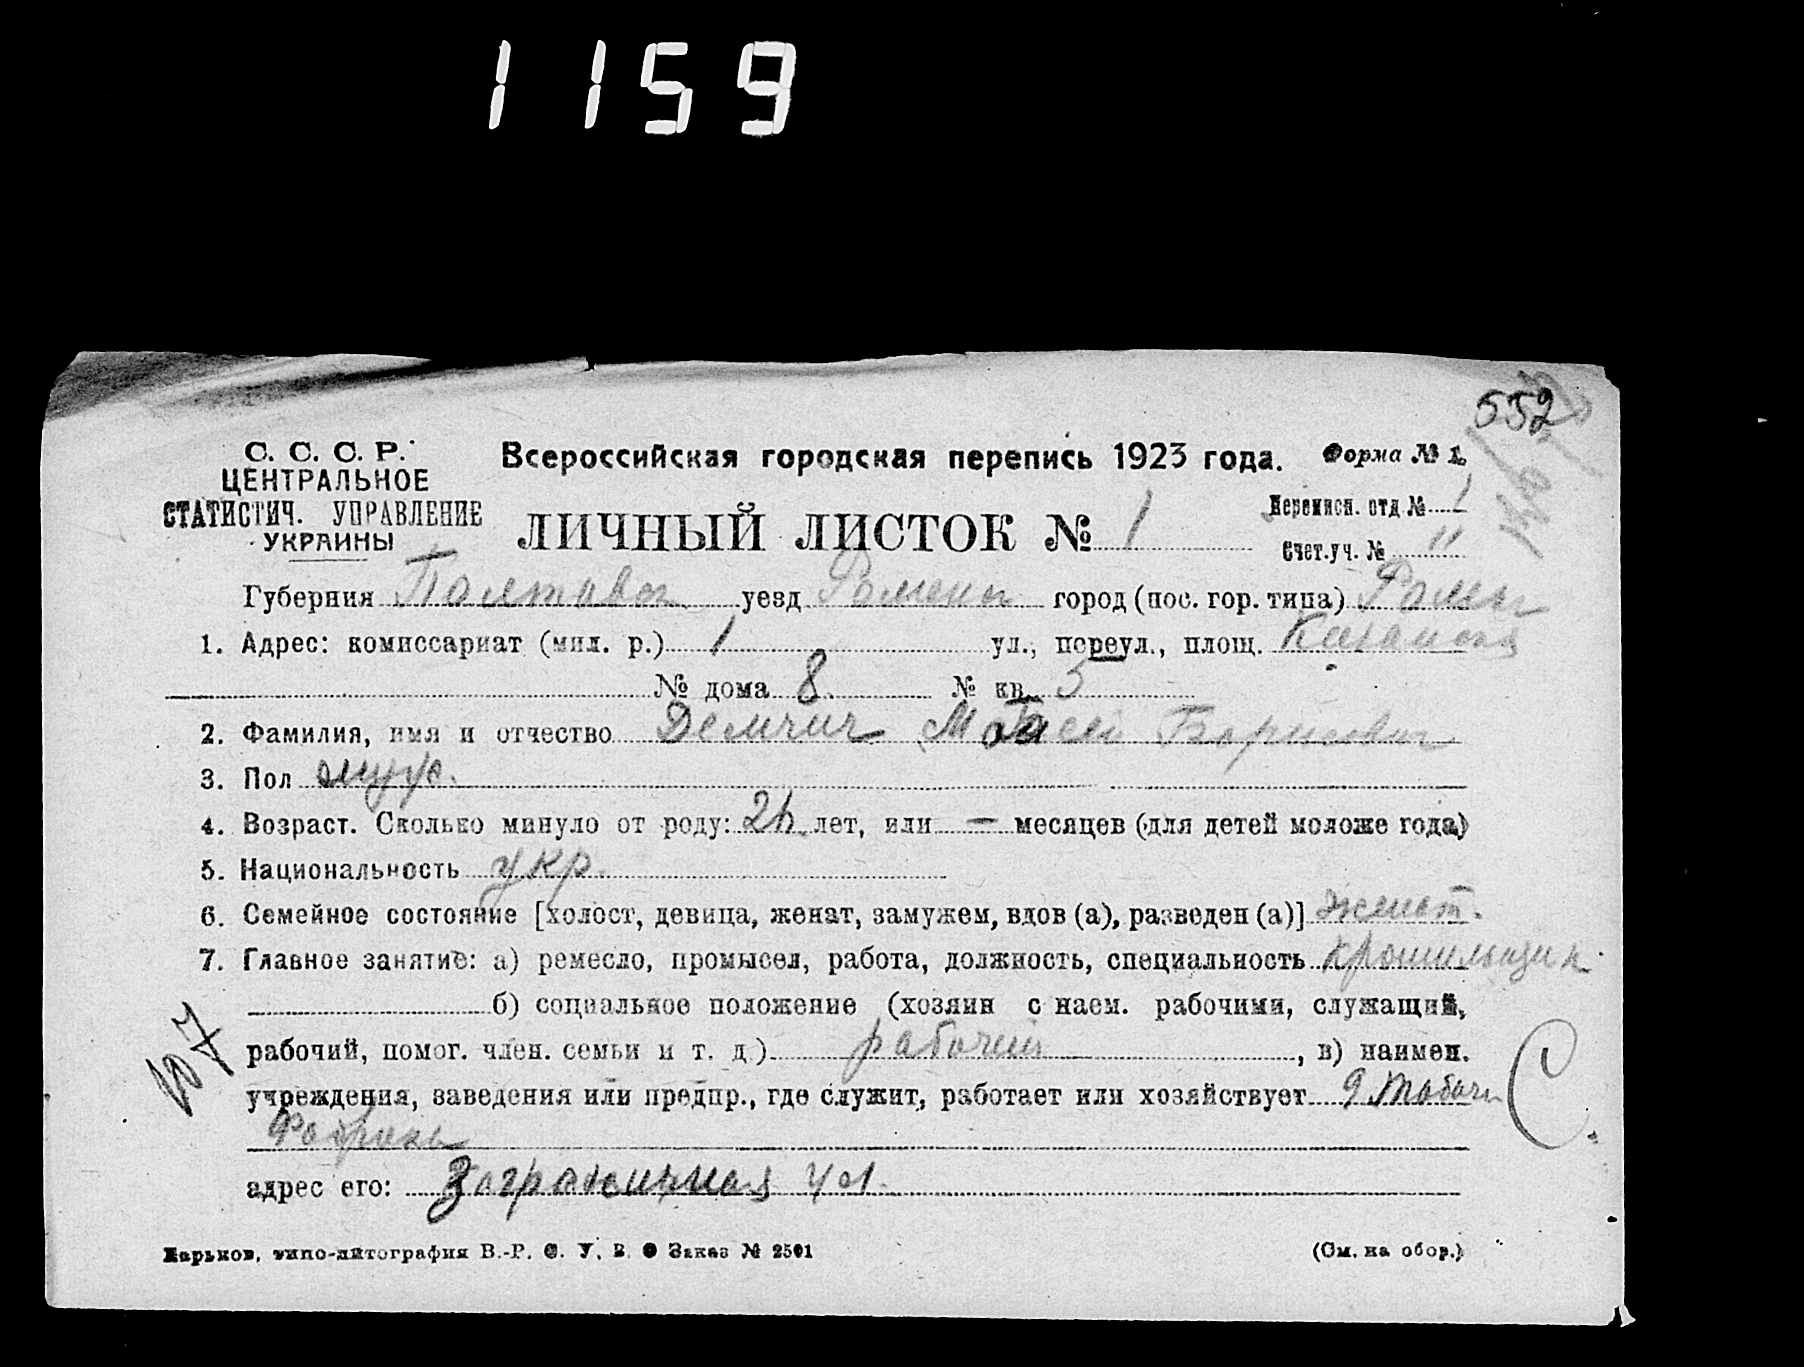 1159
552
С. С. С. Р.
ЦЕНТРАЛЬНОЕ
СТАТИСТИЧ. УПРАВЛЕНИЕ
УКРАИНЫ
Всероссийская городская перепись 1923 года.
Форма № 1.
ЛИЧНЫЙ ЛИСТОК № 1
Переписн. отд. № 1
Счет.уч. № "
Губерния Полтавск уезд город (пос. гор. типа) Ромны
1. Адрес: комиссариат (мил. р.) 1 ул., переул., площ.
№ дома 8. № кв. 5
2. Фамилия, имя и отчество Демчич Борисович
3. Пол муж.
4. Возраст. Сколько минуло от роду: лет, или — месяцев (для детей моложе года)
5. Национальность укр.
6. Семейное состояние [холост, девица, женат, замужем, вдов (а), разведен (а)] женат.
7. Главное занятие: а) ремесло, промысел, работа, должность, специальность крошильщик
б) социальное положение (хозяин с наем. рабочими, служащий,
рабочий, помог. член. семьи и т. д.) рабочий, в) наимен.
учреждения, заведения или предпр., где служит, работает или хозяйствует
адрес его: ул.
107
С.
Харьков, типо-литография В.-Р. С. У. В. О Заказ № 2501
(См. на обор.)